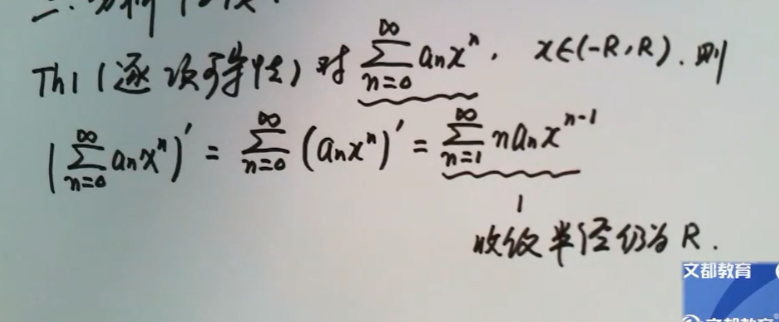 Th1 (逐项可导性) 对 $\sum_{n=0}^{\infty} a_n x^n$, x∈(-R,R). 则
$(\sum_{n=0}^{\infty} a_n x^n)' = \sum_{n=0}^{\infty} (a_n x^n)' = \sum_{n=1}^{\infty} n a_n x^{n-1}$
收敛半径仍为 R.
文都教育
文都教育